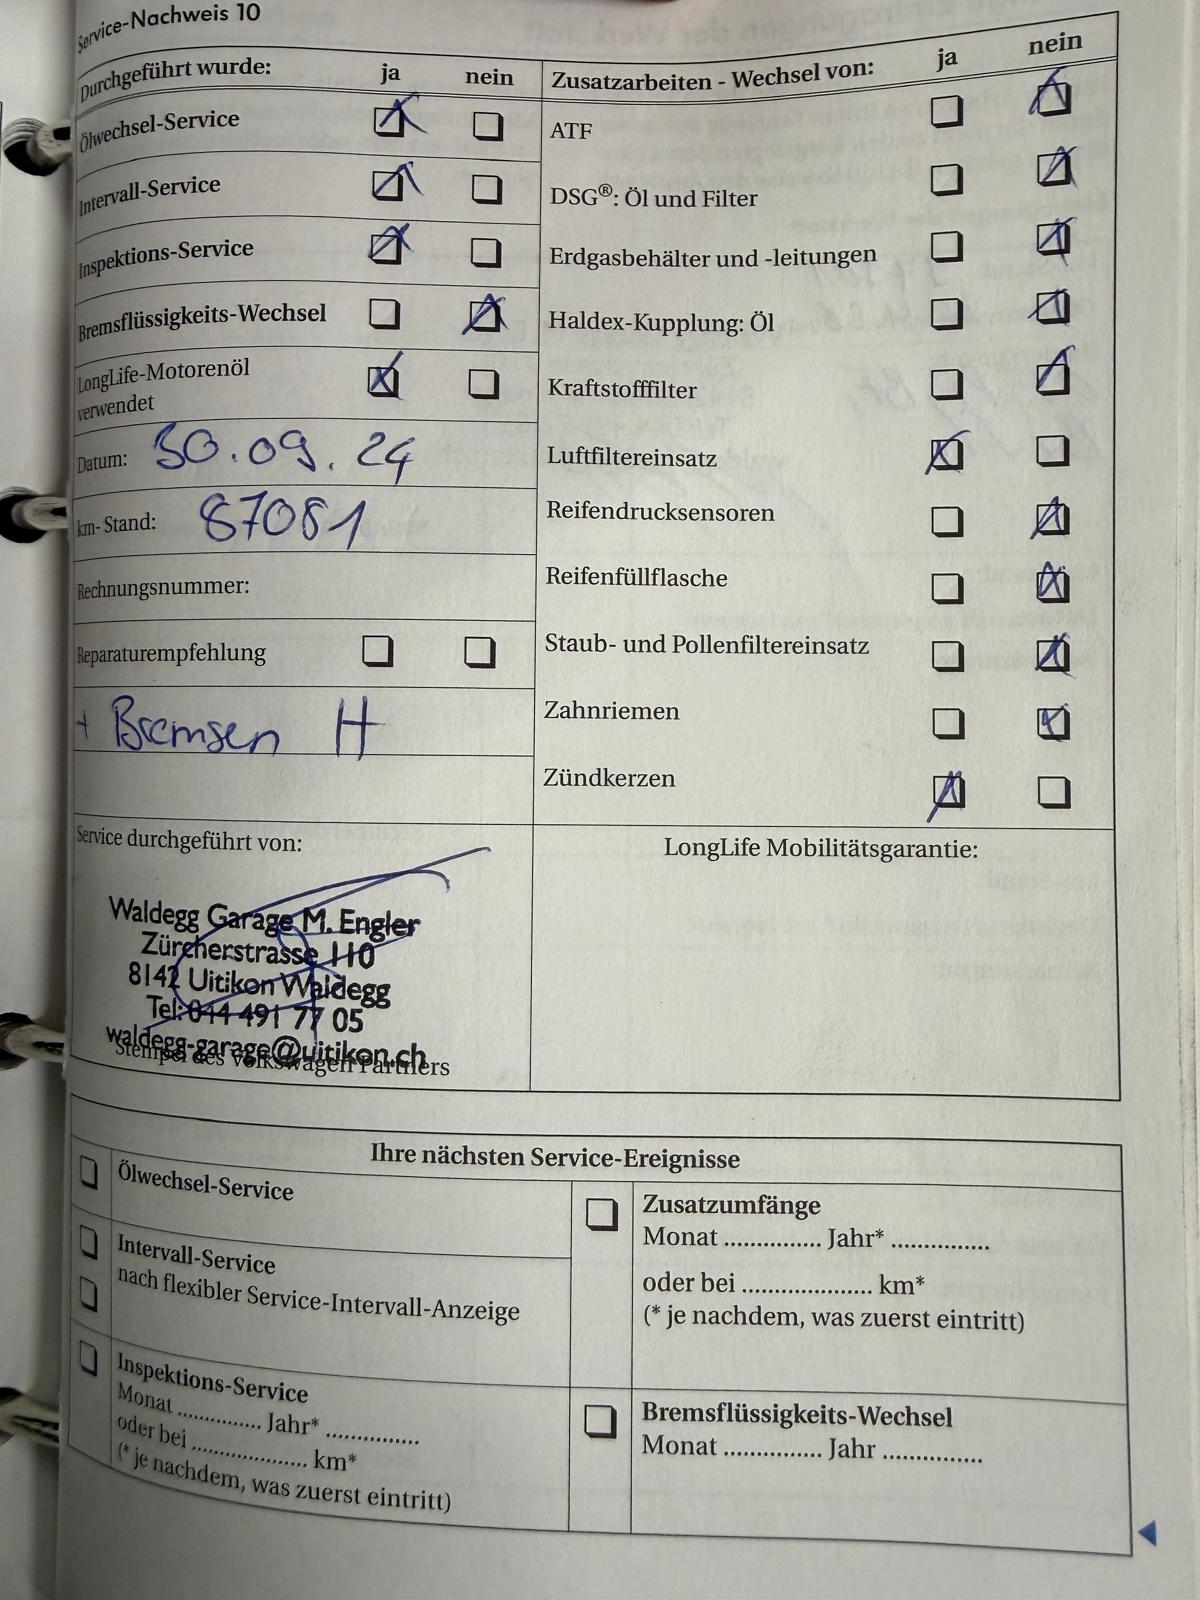 Service-Nachweis 10
Durchgeführt wurde: ja nein
Ölwechsel-Service
Intervall-Service
Inspektions-Service
Bremsflüssigkeits-Wechsel
LongLife-Motorenöl
verwendet
Datum: 30.09.24
km-Stand: 87081
Rechnungsnummer:
Reparaturempfehlung
+ Bremsen H
Zusatzarbeiten - Wechsel von: ja nein
ATF
DSG®: Öl und Filter
Erdgasbehälter und -leitungen
Haldex-Kupplung: Öl
Kraftstofffilter
Luftfiltereinsatz
Reifendrucksensoren
Reifenfüllflasche
Staub- und Pollenfiltereinsatz
Zahnriemen
Zündkerzen
Service durchgeführt von:
Waldegg Garage M. Engler
Zürcherstrasse 110
8142 Uitikon Waldegg
Tel: 044 491 77 05
waldegg-garage@uitikon.ch
Stempel des Volkswagen Partners
LongLife Mobilitätsgarantie:
Ihre nächsten Service-Ereignisse
Ölwechsel-Service
Intervall-Service
nach flexibler Service-Intervall-Anzeige
Inspektions-Service
Monat .............. Jahr* ...............
oder bei .................... km*
(* je nachdem, was zuerst eintritt)
Zusatzumfänge
Monat ............... Jahr* ...............
oder bei .................... km*
(* je nachdem, was zuerst eintritt)
Bremsflüssigkeits-Wechsel
Monat ............... Jahr ...............